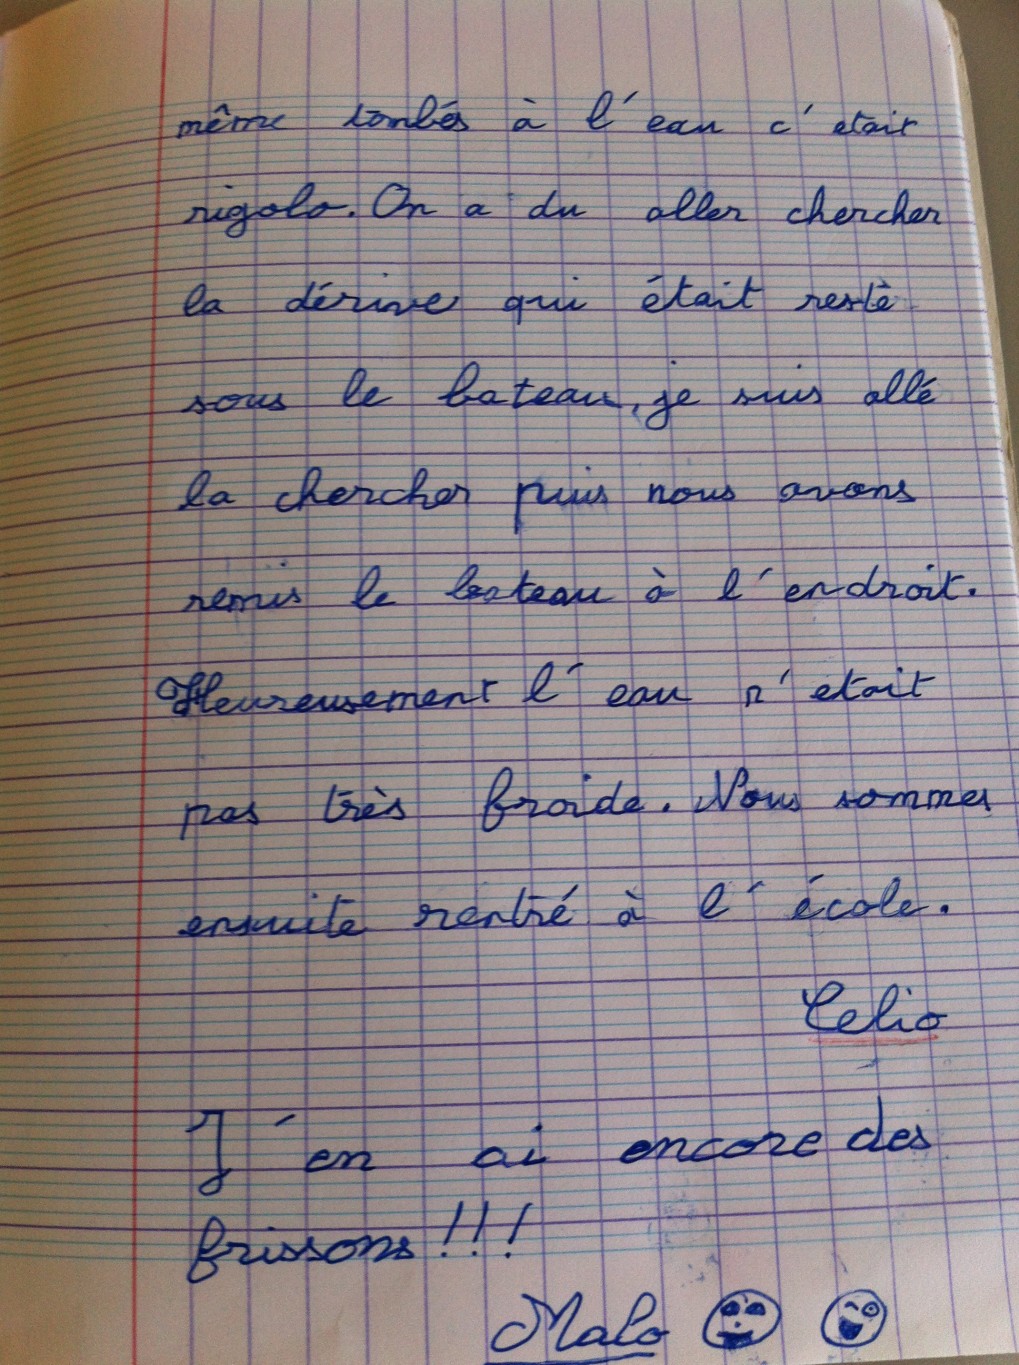 même tombés à l'eau c'etait
rigolo. On a du aller chercher
la dérive qui était resté
sous le bateau, je suis allé
la chercher puis nous avons
remis le bateau à l'endroit.
Heureusement l'eau n'etait
pas très froide. Nous sommes
ensuite rentré à l'école.
Celio
J'en ai encore des
frissons !!!
Malo